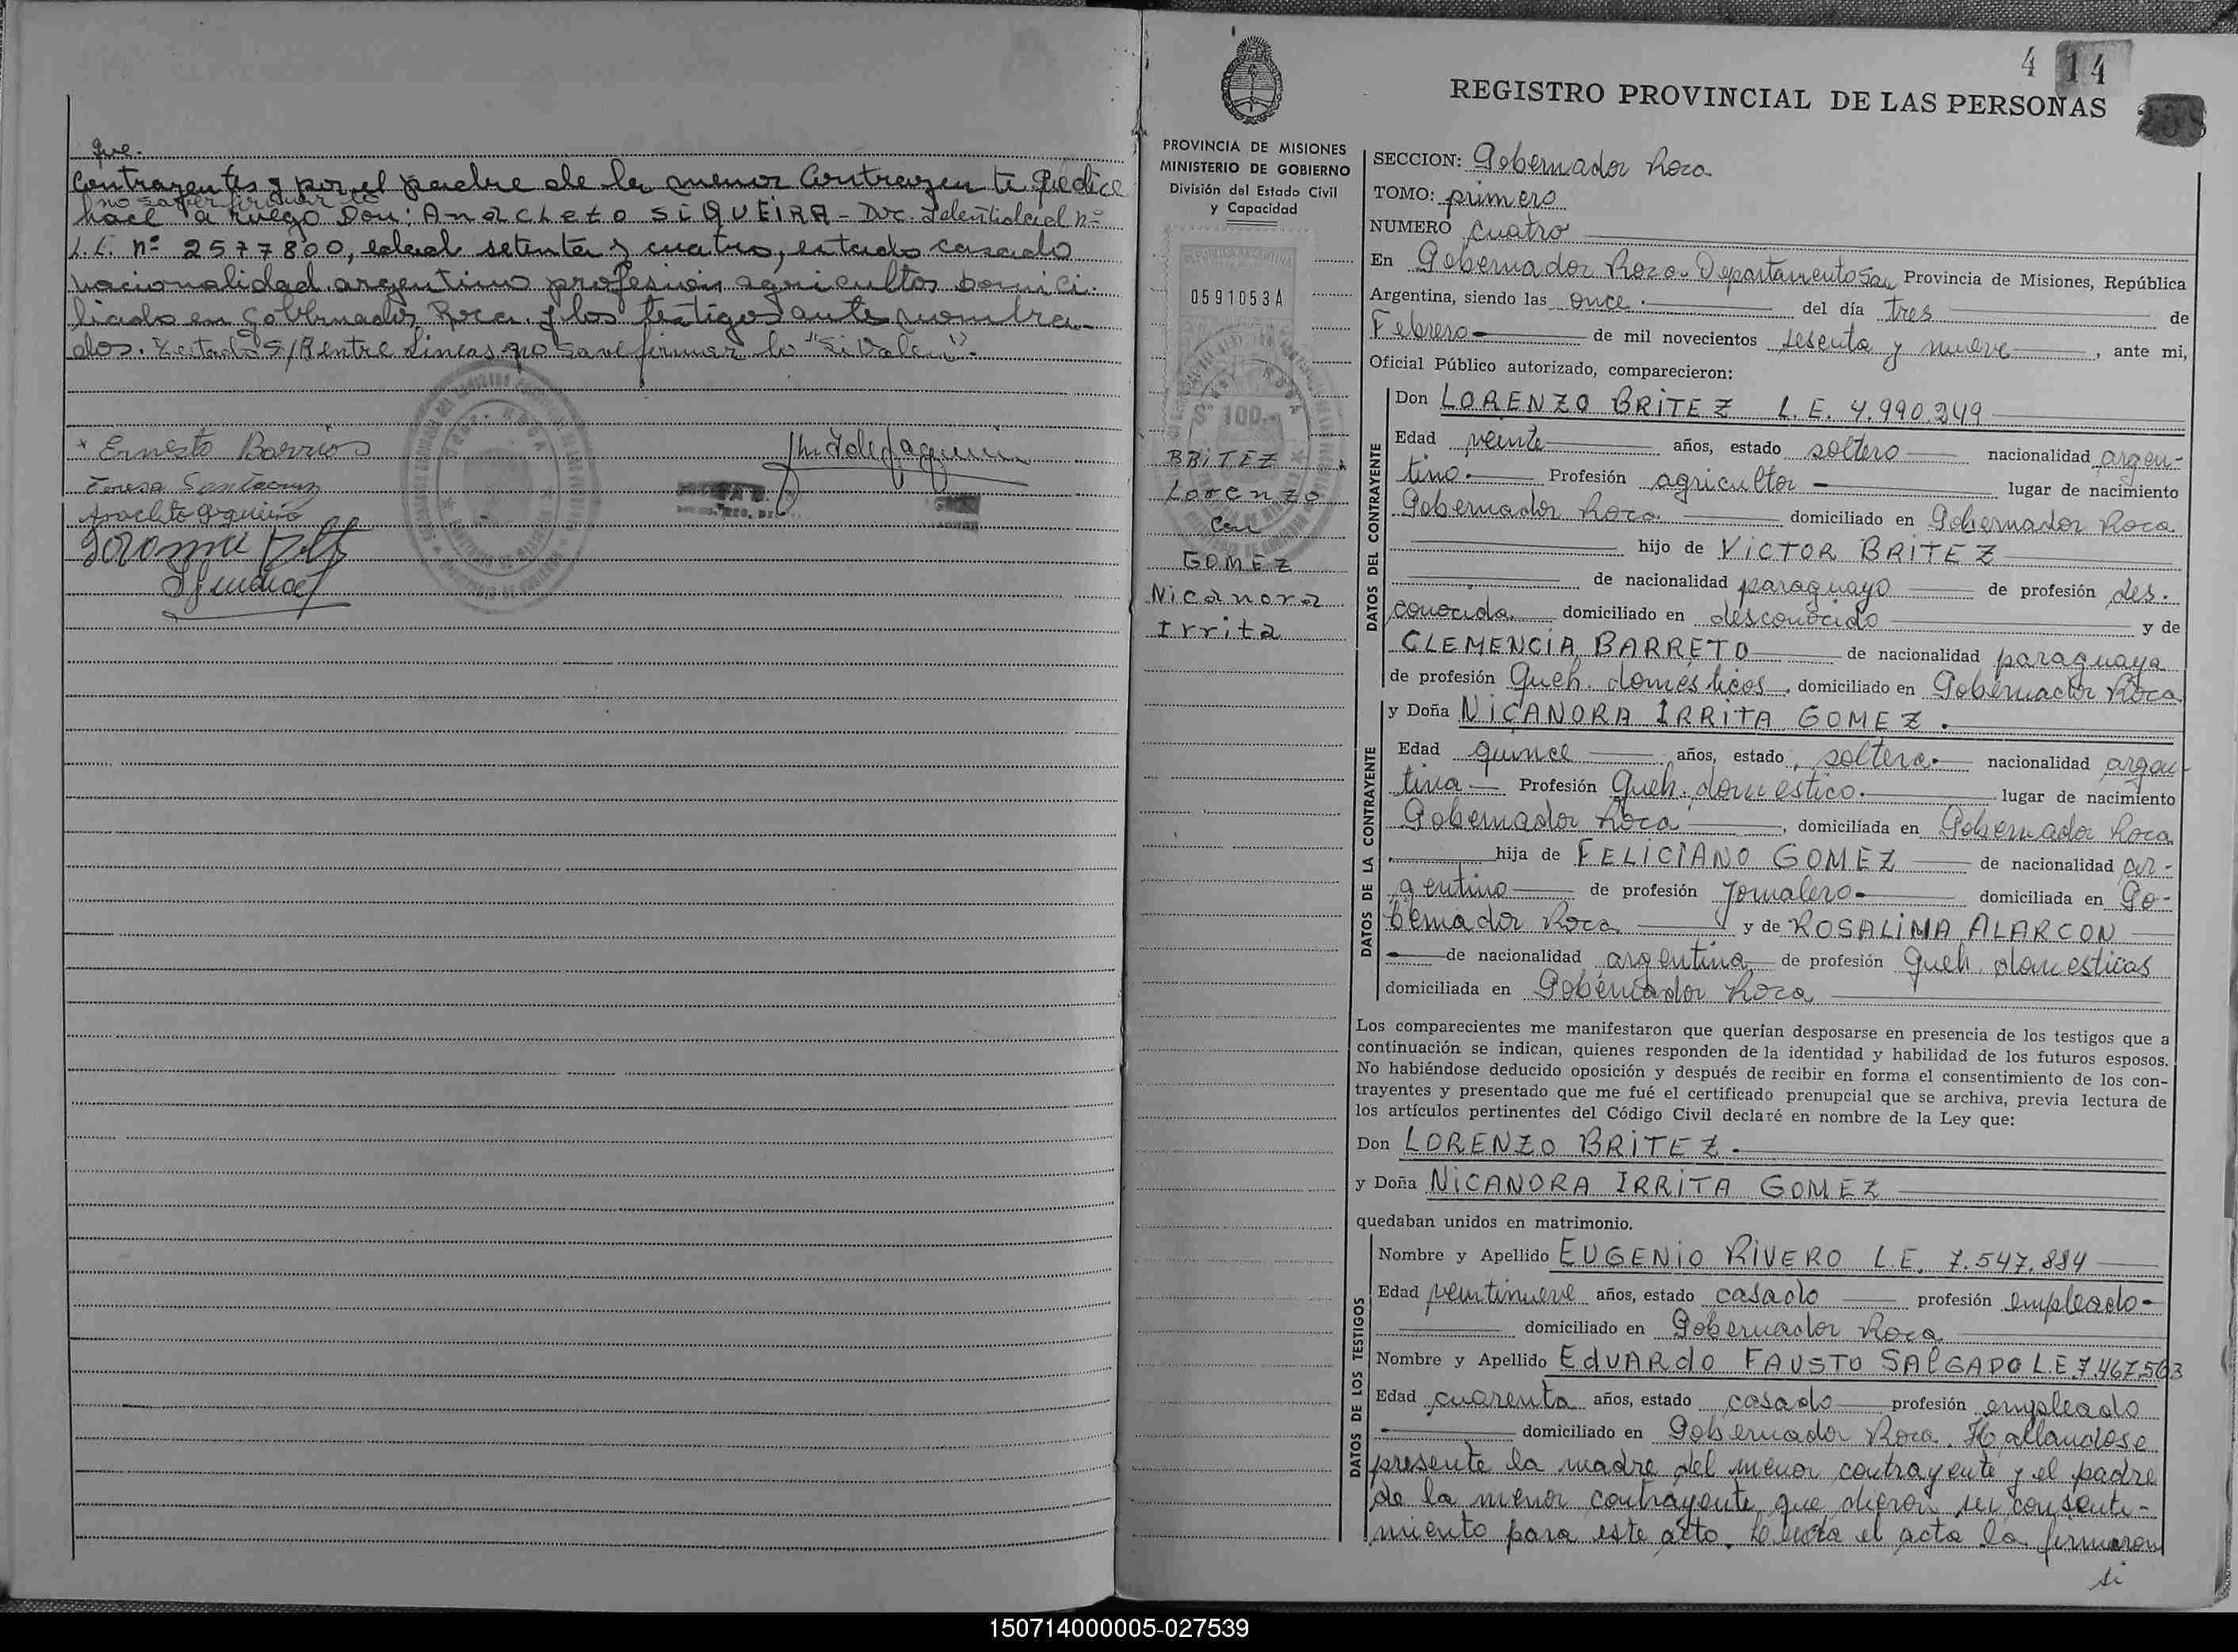 que.
contrayentes y por el padre de la menor contrayente que dice
no saber firmar lo
hace a ruego Don: Anacleto SIQUEIRA - Doc. Identidad nº
L.E. nº 2577800, edad setenta y cuatro, estado casado
nacionalidad argentino profesión agricultor domici-
liado en Gobernador Roca y los testigos antes nombra-
dos. Testado S/R entre lineas no save firmar lo "Si Valen".
Ernesto Barrios
Teresa Santacruz
Anacleto Siqueira
4 14
REGISTRO PROVINCIAL DE LAS PERSONAS
PROVINCIA DE MISIONES
MINISTERIO DE GOBIERNO
División del Estado Civil
y Capacidad
REPUBLICA ARGENTINA
0591053A
100.-
BRITEZ
Lorenzo
con
GOMEZ
Nicanora
Irrita
SECCION: Gobernador Roca
TOMO: primero
NUMERO cuatro
En Gobernador Roca Departamento San Provincia de Misiones, República
Argentina, siendo las once del día tres de
Febrero de mil novecientos sesenta y nueve, ante mi,
Oficial Público autorizado, comparecieron:
DATOS DEL CONTRAYENTE
Don LORENZO BRITEZ L.E. 4.990.249
Edad veinte años, estado soltero nacionalidad argen-
tino Profesión agricultor lugar de nacimiento
Gobernador Roca domiciliado en Gobernador Roca
hijo de VICTOR BRITEZ
de nacionalidad paraguayo de profesión des-
conocida domiciliado en desconocido y de
CLEMENCIA BARRETO de nacionalidad paraguaya
de profesión Queh. domésticos, domiciliado en Gobernador Roca
DATOS DE LA CONTRAYENTE
y Doña NICANORA IRRITA GOMEZ.
Edad quince años, estado soltera nacionalidad argen-
tina Profesión Queh. domestico. lugar de nacimiento
Gobernador Roca, domiciliada en Gobernador Roca
hija de FELICIANO GOMEZ de nacionalidad ar-
gentino de profesión Jornalero domiciliada en Go-
bernador Roca y de ROSALIMA ALARCON
de nacionalidad argentina de profesión Queh. domesticas
domiciliada en Gobernador Roca
Los comparecientes me manifestaron que querían desposarse en presencia de los testigos que a
continuación se indican, quienes responden de la identidad y habilidad de los futuros esposos.
No habiéndose deducido oposición y después de recibir en forma el consentimiento de los con-
trayentes y presentado que me fué el certificado prenupcial que se archiva, previa lectura de
los artículos pertinentes del Código Civil declaré en nombre de la Ley que:
Don LORENZO BRITEZ.
y Doña NICANORA IRRITA GOMEZ
quedaban unidos en matrimonio.
DATOS DE LOS TESTIGOS
Nombre y Apellido EUGENIO RIVERO L.E. 7.547.884
Edad veintinueve años, estado casado profesión empleado
domiciliado en Gobernador Roca
Nombre y Apellido EDUARDO FAUSTO SALGADO L.E 7.467.563
Edad cuarenta años, estado casado profesión empleado
domiciliado en Gobernador Roca. Hallandose
presente la madre del menor contrayente y el padre
de la menor contrayente que dieron su consenti-
miento para este acto. Leida el acta la firmaron
150714000005-027539